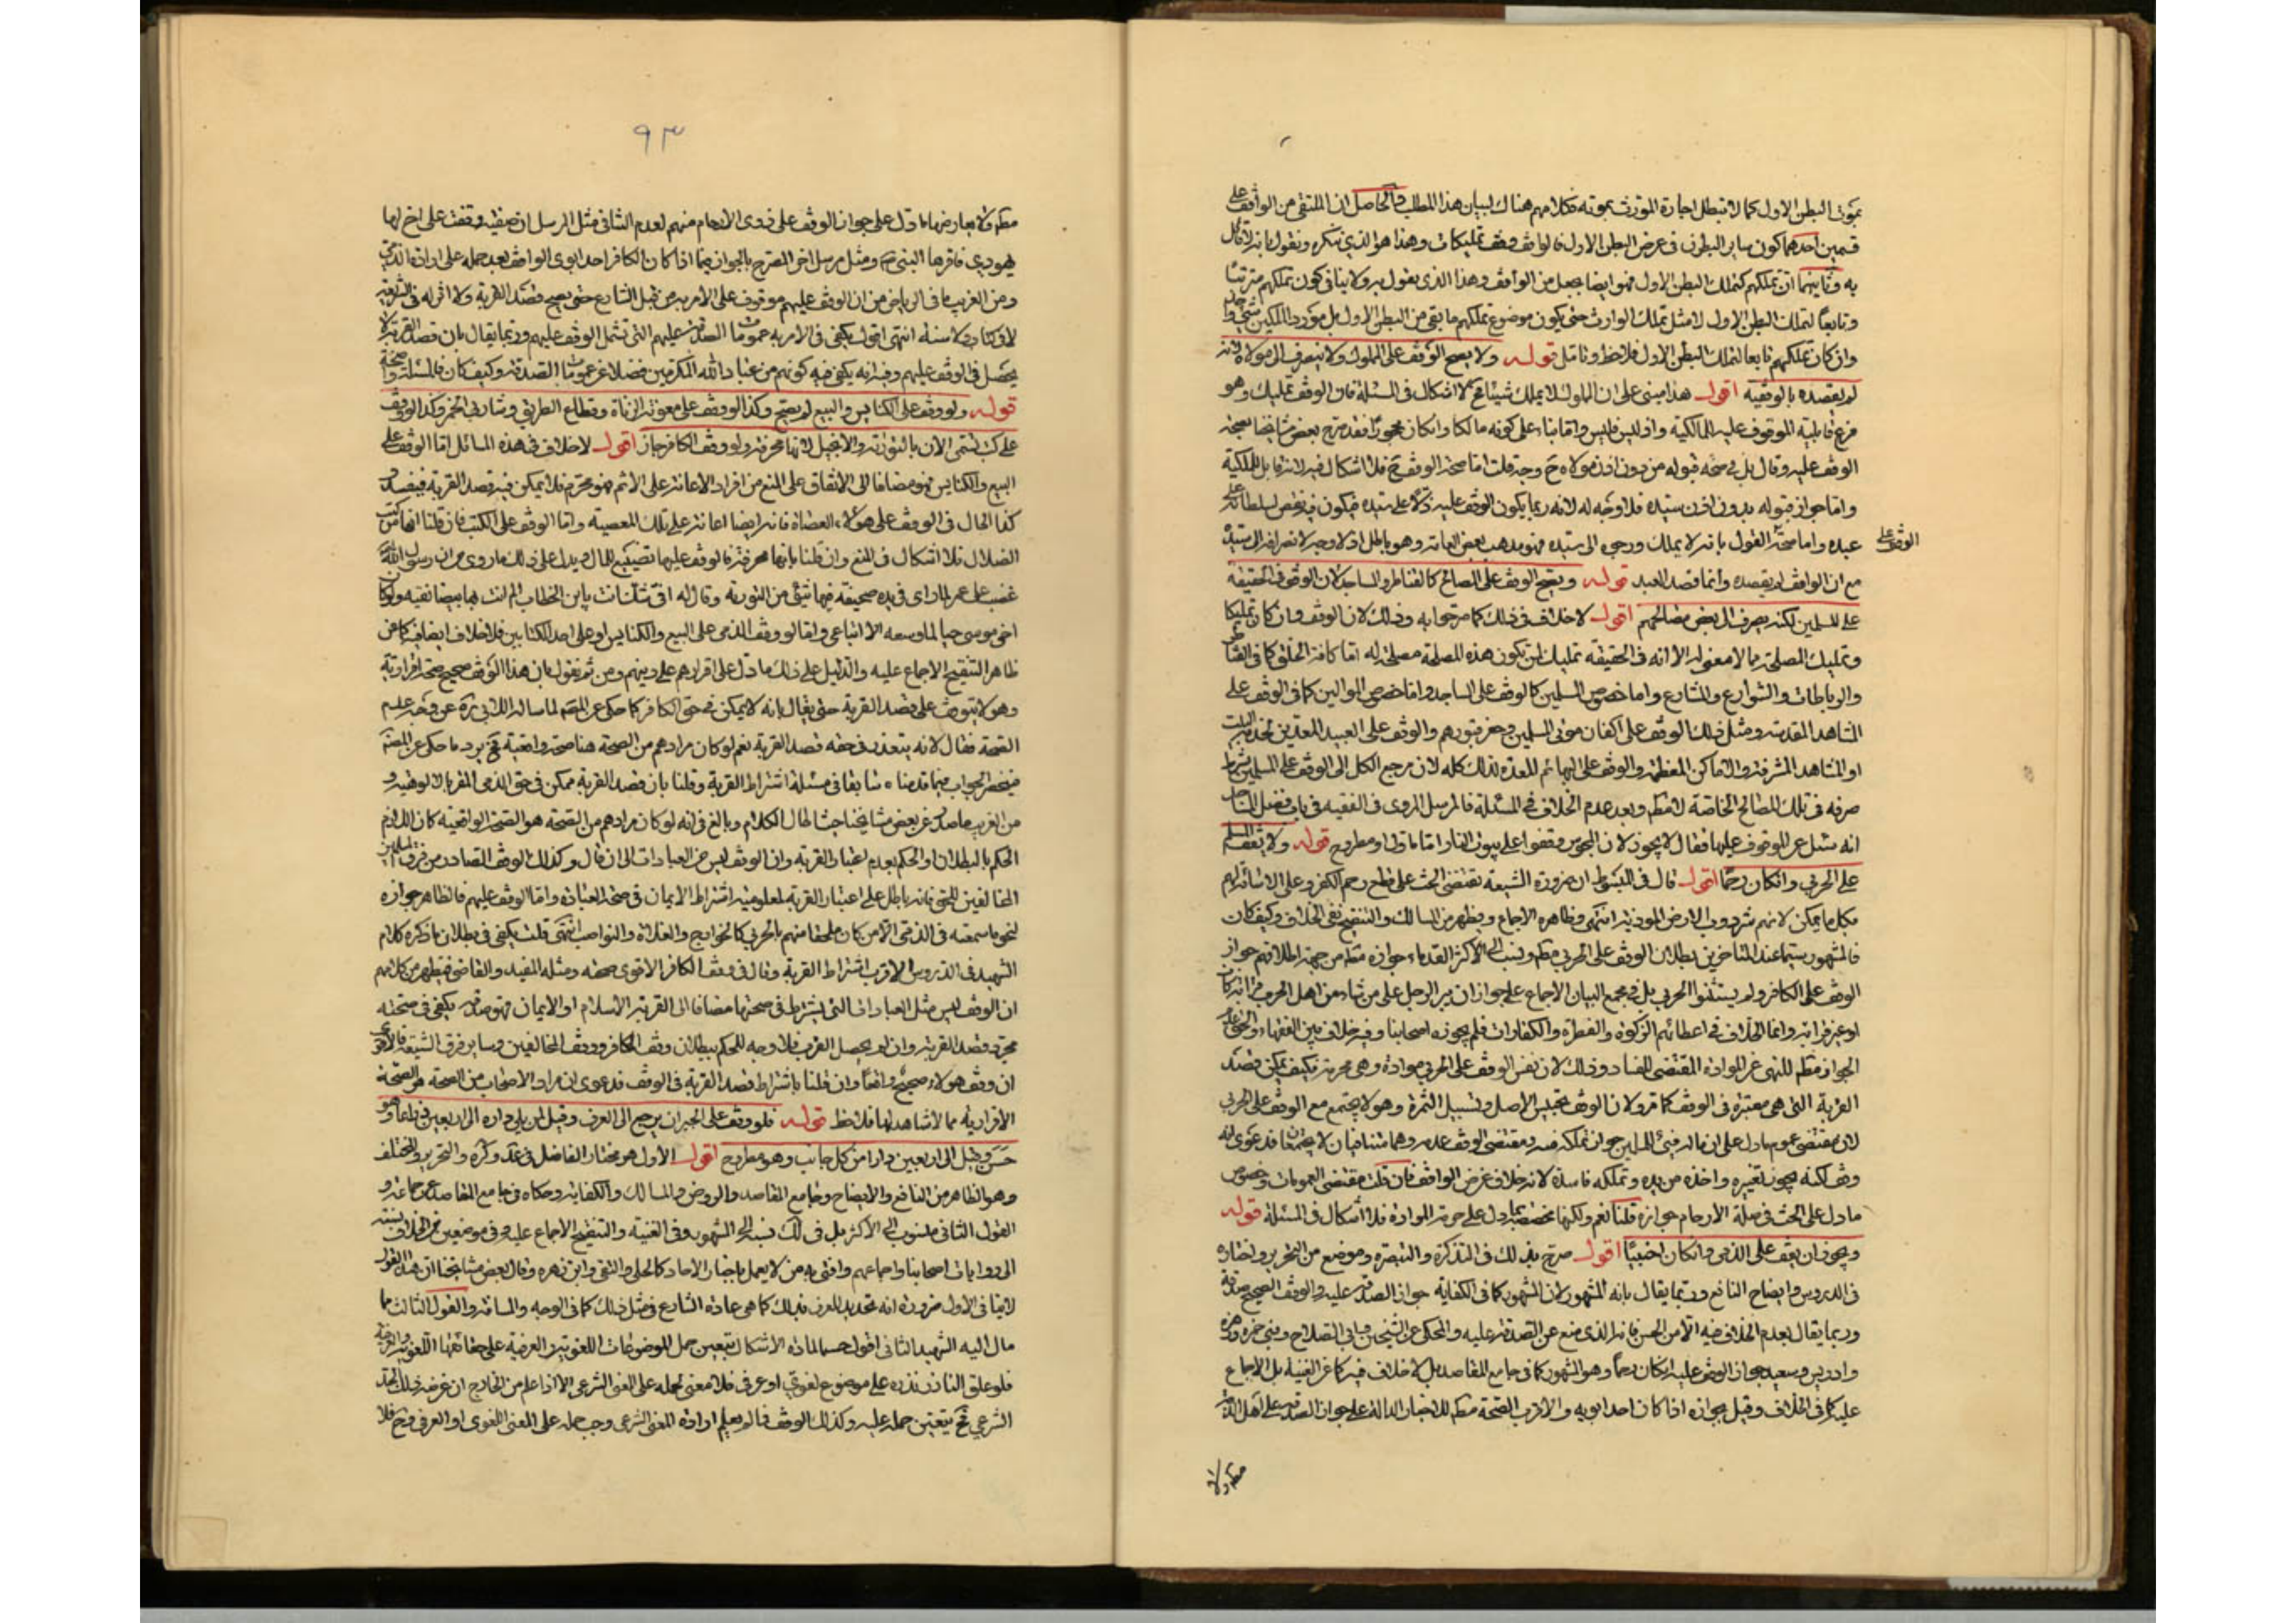 بموت البطن الاول كما لا تبطل اجارة المورث بموته فكلامهم هناك لبيان هذا المطلب والحاصل ان المتلقى من الواقف على
قسمين احدهما كون ساير البطون في عرض البطن الاول فالواقف وقف تمليكات وهذا هو الذي ننكره ونقول بانه لا قائل
به وثانيهما ان تملكهم كتملك البطن الاول فهو ايضا بجعل من الواقف وهذا الذي نقول به ولا ينافي كون تملكهم مترتبا
وتابعا لتملك البطن الاول لا مثل تملك الوارث حتى يكون موضوع تملكهم ما بقي من البطن الاول بل مورد الملكين شيء واحد
وان كان تملكهم تابعا لتملك البطن الاول فلاحظ وتامل قوله ولا يصح الوقف على المملوك ولا ينصرف الى مولاه لانه
لم يقصده بالوقفية اقول هذا مبني على ان المملوك لا يملك شيئا فح لا اشكال في المسئلة فان الوقف تمليك وهو
فرع قابلية الموقوف عليه للمالكية واذ ليس فليس واما بناء على كونه مالكا وان كان محجورا فقد صرح بعض مشايخنا بصحة
الوقف عليه وقال بل في صحة قبوله من دون اذن مولاه ح وجه قلت اما صحة الوقف ح فلا اشكال فيه لانه قابل للملكية
واما جواز قبوله بدون اذن سيده فلا وجه له لانه ربما يكون الوقف عليه كلا على سيده فيكون فيه نقض لسلطانه على
عبده واما صحة القول بانه لا يملك ورجوع الى سيده فهو مذهب بعض العامة وهو باطل اذ لا وجه لانصرافه الى سيده
الوقف على
مع ان الواقف لم يقصده وانما قصد العبد قوله ويصح الوقف على المصالح كالقناطر والمساجد لان الوقف في الحقيقة
على المسلمين لكنه يصرف الى بعض مصالحهم اقول لا خلاف في ذلك كما صرحوا به وذلك لان الوقف وان كان تمليكا
وتمليك المصلحة مما لا معنى له الا انه في الحقيقة تمليك لمن تكون هذه المصلحة مصلحة له اما كافة الخلق كما في القناطر
والرباطات والشوارع والمشارع واما خصوص المسلمين كالوقف على المساجد واما خصوص الموالين كما في الوقف على
المشاهد المقدسة ومثل ذلك الوقف على اكفان موتى المسلمين وحفر قبورهم والوقف على العبيد المعدين لخدمة البيت
او المشاهد المشرفة والاماكن المعظمة والوقف على البهائم المعدة لذلك كله لان مرجع الكل الى الوقف على المسلمين بشرط
صرفه في تلك المصالح الخاصة لا مطم وبعد عدم الخلاف في المسئلة فالمرسل المروي في الفقيه في باب فضل المساجد
انه سئل عن الوقوف عليها فقال لا يجوز لان المجوس وقفوا على بيوت النار اما ماول او مطروح قوله ولا يقف المسلم
على الحربي وان كان رحما اقول قال في التبسط ان ضرورة الشيعة تقتضي الحث على قطع رحم الكفر وعلى الاساءة لهم
بكل ما يمكن لانهم شر دواب الارض الموذية انتهى وظاهره الاجماع ويظهر من المسالك والتنقيح نفي الخلاف وكيف كان
فالمشهور سيما عند المتاخرين بطلان الوقف على الحربي مطم ونسب الى الاكثر القدماء جوازه مطم من جهة اطلاقهم جواز
الوقف على الكافر ولم يستثنوا الحربي بل في مجمع البيان الاجماع على جواز ان يبر الرجل على من شاء من اهل الحرب قرابة كان
او غير قرابة وانما الخلاف في اعطائهم الزكوة والفطرة والكفارات فلم يجوزه اصحابنا وفيه خلاف بين الفقهاء والحق عدم
الجواز مطم للنهي عن الموادة المقتضي للفساد وذلك لان نفس الوقف على الحربي موادة وهي محرمة فكيف يمكن قصد
القربة التي هي معتبرة في الوقف كما مر ولان الوقف تحبيس الاصل وتسبيل الثمرة وهو لا يجتمع مع الوقف على الحربي
لان مقتضى عموم ما دل على ان ماله فيئ للمسلمين جواز تملكه منه ومقتضى الوقف عدمه وهما متنافيان لا يجتمعان فدعوى انه
وقف لكنه يجوز تغييره واخذه من يده وتملكه فاسدة لانه خلاف غرض الواقف فان قلت مقتضى العمومات وخصوص
ما دل على الحث في صلة الارحام جوازه قلنا نعم ولكنها مخصصة بما دل على حرمة الموادة فلا اشكال في المسئلة قوله
ويجوز ان يقف على الذمي وان كان اجنبيا اقول صرح بذلك في التذكرة والتبصرة وموضع من التحرير واختاره
في الدروس وايضاح النافع وربما يقال بانه المشهور لان المشهور كما في الكفاية جواز الصدقة عليه والوقف الصحيح صدقة
وربما يقال بعدم الخلاف فيه الا من الحسن فانه الذي منع عن الصدقة عليه والمحكى عن الشيخين وابي الصلاح وبني حمزة وزهرة
وادريس وسعيد جواز الوقف عليه ان كان رحما وهو المشهور كما في جامع المقاصد بل لا خلاف فيه كما عن الغنية بل الاجماع
عليه كما في الخلاف وقيل بجوازه اذا كان احد ابويه والاقرب الصحة مطم للاخبار الدالة على جواز الصدقة على اهل الذمة
مطم ولا
٩٣
مطم ولا يعارضها ما دل على جواز الوقف على ذوي الارحام منهم لعدم التنافي مثل المرسل ان صفية وقفت على اخ لها
يهودي فاقرها النبي ص ومثل مرسل اخر المصرح بالجواز فيما اذا كان الكافر احد ابوي الواقف بعد حمله على ارادة الذمي
ومن الغريب ما في الرياض من ان الوقف عليهم موقوف على الامر به من قبل الشارع حتى يصح قصد القربة ولا اثر له في الشريعة
لا في كتاب ولا سنة انتهى اقول يكفي في الامر به عمومات الصدقة عليهم التي تشمل الوقف عليهم وربما يقال بان قصد القربة لا
يحصل في الوقف عليهم وفيه انه يكفي فيه كونهم من عباد الله المكرمين فضلا عن عمومات الصدقة وكيف كان فالمسئلة واضحة
قوله ولو وقف على الكنايس والبيع لم يصح وكذا الوقف على معونة الزناة وقطاع الطريق وشاربي الخمر وكذا لو وقف
على كتب تسمى الان بالتورية والانجيل لانها محرفة ولو وقف الكافر جاز اقول لا خلاف في هذه المسائل اما الوقف على
البيع والكنايس فهو مضافا الى الاتفاق على المنع من افراد الاعانة على الاثم فهو محرم فلا يمكن فيه قصد القربة فيفسد و
كذا الحال في الوقف على هؤلاء العصاة فانه ايضا اعانة على تلك المعصية واما الوقف على الكتب فان قلنا انها كتب
الضلال فلا اشكال في المنع وان قلنا بانها محرفة فالوقف عليها تضييع للمال ويدل على ذلك ما روي من ان رسول الله ص
غضب على عمر لما راى في يده صحيفة فيها شيئ من التورية وقال له افي شك انت يابن الخطاب الم ات بها بيضاء نقية ولو كان
اخي موسى حيا لما وسعه الا اتباعي واما لو وقف الذمي على البيع والكنايس او على احد الكتابين فلا خلاف ايضا فيه كما عن
ظاهر التنقيح الاجماع عليه والدليل على ذلك ما دل على اقرارهم على دينهم ومن ثم نقول بان هذا الوقف صحيح صحة اقرارية
وهو لا يتوقف على قصد القربة حتى يقال بانه لا يمكن في حق الكافر كما حكي عن المصم لما ساله عن وجه عدم
الصحة فقال لانه يتعذر في حقه قصد القربة نعم لو كان مرادهم من الصحة هنا صحة واقعية فح يرد ما حكي عن المصم
فينحصر الجواب فيما قدمناه سابقا في مسئلة اشتراط القربة وقلنا بان قصد القربة ممكن في حق الذمي المقر بالالوهية و
من الغريب ما صدر عن بعض مشايخنا حيث اطال الكلام وبالغ في انه لو كان مرادهم من الصحة هو الصحة الواقعية كان اللازم
الحكم بالبطلان او الحكم بعدم اعتبار القربة وان الوقف ليس من العبادات الى ان قال وكذلك الوقف الصادر من فرق المسلمين
المخالفين للحق فانه باطل على اعتبار القربة لمعلومية اشتراط الايمان في صحة العبادة واما الوقف عليهم فالظاهر جوازه
لنحو ما سمعته في الذمي الا من كان ملحقا منهم بالحربي كالخوارج والغلاة والنواصب انتهى قلت يكفي في بطلان ما ذكره كلام
الشهيد في الدروس الاقرب اشتراط القربة وقال في وقف الكافر الاقوى صحته ومثله المفيد والقاضي فيظهر من كلامهم
ان الوقف ليس مثل العبادات التي يشترط في صحتها مضافا الى القربة الاسلام او الايمان فهو صدقة يكفي في صحته
مجرد قصد القربة وان لم يحصل القرب فلا وجه للحكم ببطلان وقف الكافر ووقف المخالفين وساير فرق الشيعة فالاقوى
ان وقف هؤلاء صحيح واقعا وان قلنا باشتراط قصد القربة في الوقف فدعوى ان مراد الاصحاب من الصحة هو الصحة
الاقرارية مما لا شاهد لها فلاحظ قوله فلو وقف على الجيران يرجع الى العرف وقيل لمن يلي داره الى اربعين ذراعا وهو
حسن وقيل الى اربعين دارا من كل جانب وهو مطروح اقول الاول هو مختار الفاضل في عد وكره والتحرير والمختلف
وهو الظاهر من النافع والايضاح وجامع المقاصد والروض والمسالك والكفاية وحكاه في جامع المقاصد عن جماعة و
القول الثاني منسوب الى الاكثر بل في لك نسبه الى المشهور وفي الغنية والتنقيح الاجماع عليه وفي موضعين من الخلاف نسبته
الى روايات اصحابنا واجماعهم وافتى به من لا يعمل باخبار الاحاد كالحلي والتقي وابن زهره وقال بعض مشايخنا ان هذا القول
لا ينافي الاول ضرورة انه تحديد للعرف بذلك كما هي عادة الشارع في مثل ذلك كما في الوجه والمسافة والقول الثالث ما
مال اليه الشهيد الثاني اقول حسما لمادة الاشكال يتعين حمل الموضوعات اللغوية والعرفية على حقائقها اللغوية والعرفية
فلو علق الناذر نذره على موضوع لغوي او عرفي فلا معنى لحمله على المعنى الشرعي الا اذا علم من الخارج ان غرضه ذلك الحد
الشرعي فح يتعين حمله عليه وكذلك الوقف فما لم يعلم ارادة المعنى الشرعي وجب حمله على المعنى اللغوي او العرفي وح فلا